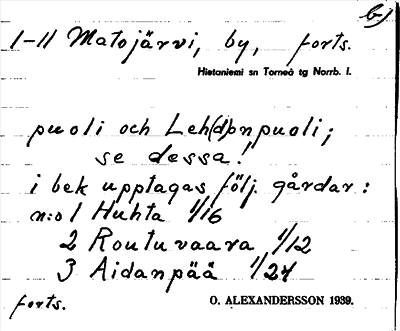 b)
1-11 Matojärvi, by, forts.
Hietaniemi sn Torneå tg Norrb. l.
puoli och Leh(d)onpuoli;
se dessa!
i bek upptagas följ. gårdar:
n:o 1 Huhta 1/16
2 Routuvaara 1/12
3 Aidanpää 1/24
forts.
O. ALEXANDERSSON 1939.